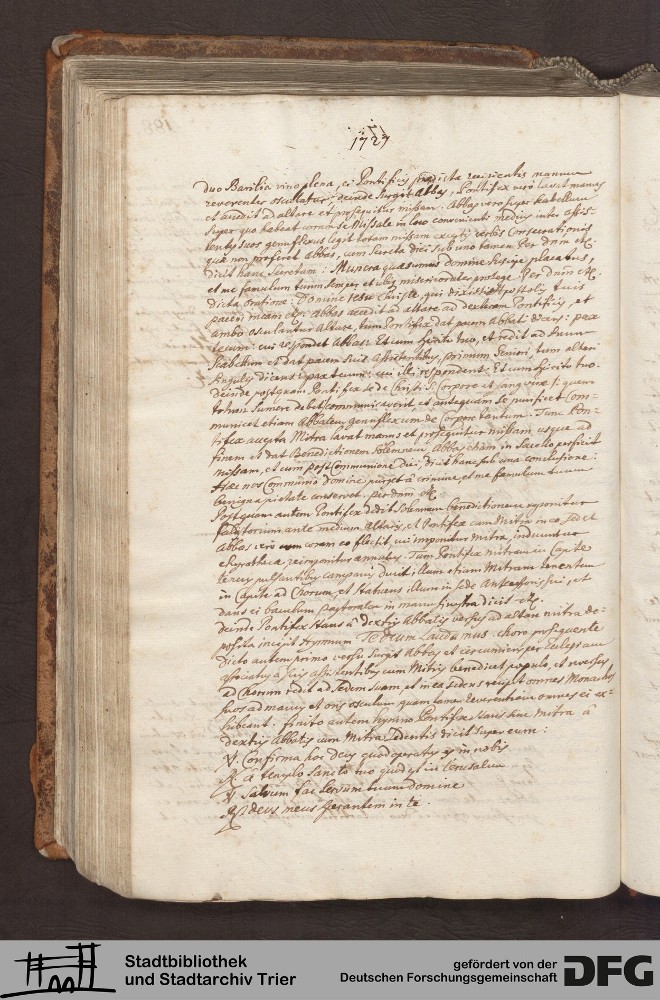 1727
duo Barilia vino plena, ei Pontificis praedicta recipientis manum
reverenter osculatur, deinde surgit Abbas, Pontifex verò lavat manus
et accedit ad altare et prosequitur missam. Abbas vero super scabellum
super quo habeat coram se Missale in loco convenienti medius inter assis-
tentes suos genuflexus legit totam missam exceptis verbis Consecrationis
quae non proferet Abbas, cum Secreta dicit sub uno tamen Per dnm etc.
dicit hanc Secretam: Munera quaesumus domine suscipe placatus,
et me famulum tuum semper et ubiq misericorditer protege. Per dnm etc.
dicta oratione: Domine Jesu Christe, qui dixisti Apostolis tuis
pacem meam etc. Abbas accedit ad altare ad dexteram Pontificis, et
ambo osculantur Altare, tum Pontifex dat pacem Abbati dicens: pax
tecum: cui respondet Abbas: Et cum spiritu tuo, et redit ad suum
Scabellum et dat pacem suis Assistentibus, primum Seniori, tum alteri
singulis dicens: pax tecum: cui illi respondent: Et cum spiritu tuo.
deinde postquam Pontifex se de Christi Corpore et sanguine
sumere debet communicaverit et antequam se purificet Com-
municet etiam Abbatem genuflexum de Corpore tantum. Tunc Pon-
tifex accepta Mitra lavat manus et prosequitur missam usque ad
finem et dat Benedictionem solemnem, Abbas etiam in Sacello perficit
missam, et cum post Communionem dicit hanc sub una conclusione:
Haec nos Communio domine purget à crimine et me famulum tuum
benigna pietate conservet. per dnm etc.
Postquam autem Pontifex dedit solemnem benedictionem reponitur
faldistorium ante medium altaris, et Pontifex cum Mitra in eo sedet
Abbas vero coram eo flectit, cui imponitur mitra, induuntur
chyrothecae reimponitur annulus. Tum Pontifex mitram in Capite
tenens pulsantibus campanis ducit illum etiam Mitram tenentem
in Capite ad Chorum, et statuens illum in sede Antecessoris sui, et
dans ei baculum Pastoralem in manu sinistra dicit etc.
deinde Pontifex stans à dextris Abbatis versus ad altare mitra de-
posita incipit Hymnum Te Deum Laudamus. choro prosequente
Dicto autem primo versu surgit Abbas et circumiens per Ecclesiam
associatus à suis assistentibus cum Mitris benedicet populo, et reversus
ad Chorum redit ad Sedem suam, et in ea sedens recipit omnes Monachos
suos ad manus et oris osculum quam tamen Reverentiam omnes ei ex-
hibeant: finito autem hymno Pontifex stans sine mitra à
dextris Abbatis cum Mitra sedentis dicit super eum:
V. Confirma hoc Deus quod operatus es in nobis
R. à templo sancto tuo quod est in Jerusalem
V. Salvum fac servum tuum domine
R. deus meus sperantem in te.
Stadtbibliothek
und Stadtarchiv Trier
gefördert von der
Deutschen Forschungsgemeinschaft
DFG